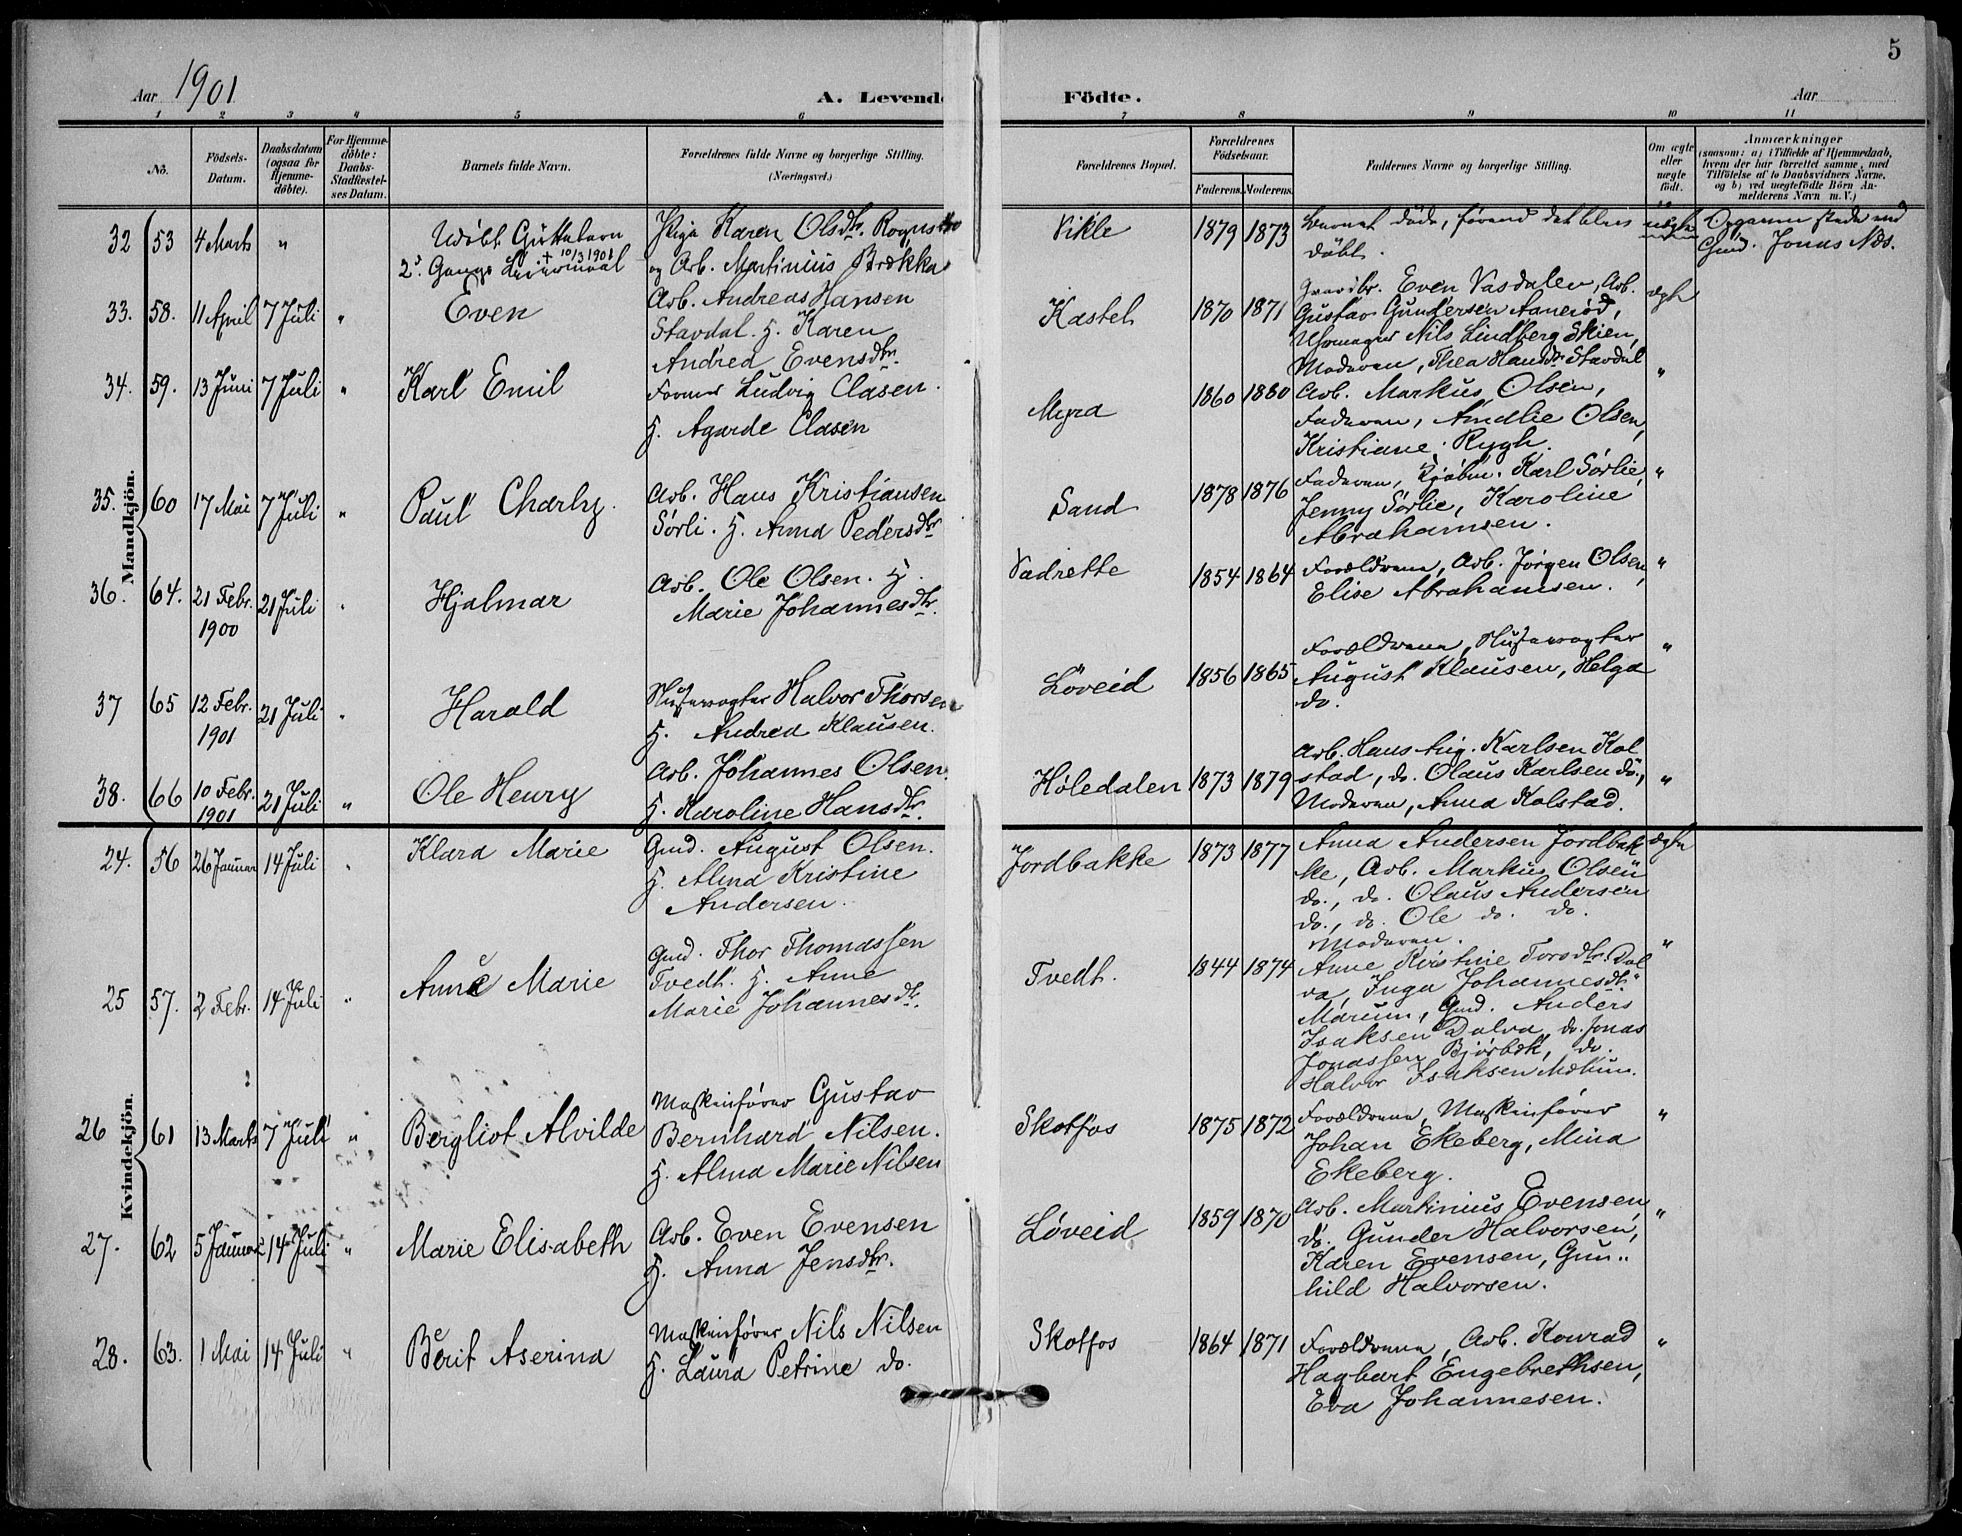 5
Aar 1901
A. Levende Födte.
Aar
1 2 3 4 5 6 7 8 9 10 11
No.
Födsels-
Datum.
Daabsdatum
(ogsaa for
Hjemme-
döbte).
For Hjemme-
döbte:
Daabs-
Stadfestel-
ses Datum.
Barnets fulde Navn.
Forældrenes fulde Navne og borgerlige Stilling.
(Næringsvei.)
Forældrenes Bopæl.
Forældrenes
Födselsaar.
Faderens. Moderens.
Faddernes Navne og borgerlige Stilling.
Om ægte
eller
uægte
födt.
Anmærkninger
(saasom: a) i Tilfælde af Hjemmedaab,
hvem der har forrettet samme, med
Tilföielse af to Daabsvidners Navne.
og b) ved uægtefödte Börn An-
melderens Navn m. V.)
Mandkjön.
32 53 4 Marts "
Udöbt Guttebarn
+ 10/3 1901
2. Gangs Leiermaal
Pige Karen Olsdtr. Rognsbo
og Arb. Martinius Brækka
Vikle
1879 1873
Barnet döde, förend det blev
döbt.
uægte
Opgaven stede ved
Gmd. Jonas Næs.
33. 58. 11 April 7 Juli "
Even
Arb. Andreas Hansen
Stavdal. H. Karen
Andrea Evensdtr.
Kastet
1870 1871
Even Vasdalen, Arb.
Gustav Gundersen Aanerød,
Uhrmager Nils Lindberg Skien,
Moderen, Thea Hansdtr Stavdal
ægte
34. 59. 13 Juni 7 Juli "
Karl Emil
Former Ludvig Clasen.
H. Agarde Clasen
Myra
1860 1880
Arb. Markus Olsen,
Faderen, Amalie Olsen,
Kristiane Rygh.
"
35. 60 17 Mai 7 Juli "
Paul Charly.
Arb. Hans Kristiansen
Sörli. H. Anna Pedersdtr
Sand
1878 1876
Faderen, Kjöbm. Karl Sörlie,
Jenny Sörlie, Karoline
Abrahamsen.
"
36. 64. 21 Febr. 21 Juli "
1900
Hjalmar
Arb. Ole Olsen. H.
Marie Johannesdtr.
Vadrette
1854 1864
Forældrene, Arb. Jörgen Olsen,
Elise Abrahamsen.
"
37 65 12 Febr. 21 Juli "
1901
Harald
Slusevogter Halvor Thorsen
H. Andrea Klausen.
Löveid
1856 1865
Forældrene, Slusevogter
August Klausen, Helga
do.
"
38. 66 10 Febr. 21 Juli "
1901
Ole Henry
Arb. Johannes Olsen.
H. Karoline Hansdtr.
Høledalen
1873 1879
Arb. Hans Aug. Karlsen Kol
stad, do. Olaus Karlsen do.,
Moderen, Anna Kolstad.
"
Kvindekjön.
24. 56 26 Januar 14 Juli "
Klara Marie
Gmd. August Olsen.
H. Alma Kristine
Andersen.
Jordbakke
1873 1877
Anna Andersen Jordbak
ke, Arb. Markus Olsen
do., do. Olaus Andersen
do., do. Ole do. do.
Moderen.
ægte
25 57. 2 Febr. 14 Juli "
Anne Marie
Gmd. Thor Thomassen
Tvedt. H. Anne
Marie Johannesdtr.
Tvedt.
1844 1874
Anne Kristine Torsdtr. Dal
va, Inga Johannesdtr.
Marum, Gmd. Anders
Isaksen Dalva, do. Jonas
Jonassen Bjørbæk, do.
Halvor Isaksen Mælum.
"
26 61 13 Marts 7 Juli "
Bergliot Alvilde
Maskinfører Gustav
Bernhard Nilsen.
H. Alma Marie Nilsen
Skotfos
1875 1872
Forældrene, Maskinfører
Johan Ekeberg, Mina
Ekeberg.
"
27. 62 5 Januar 14 Juli "
Marie Elisabeth
Arb. Even Evensen
H. Anna Jensdtr.
Löveid
1859 1870
Arb. Martinius Evensen,
do. Gunder Halvorsen,
Karen Evensen, Gun-
hild Halvorsen.
"
28. 63. 1 Mai 14 Juli "
Berit Aserina
Maskinfører Nils Nilsen
H. Laura Petrine do.
Skotfos
1864 1871
Forældrene, Arb. Konrad
Hagbart Engebrethsen,
Eva Johannesen.
"